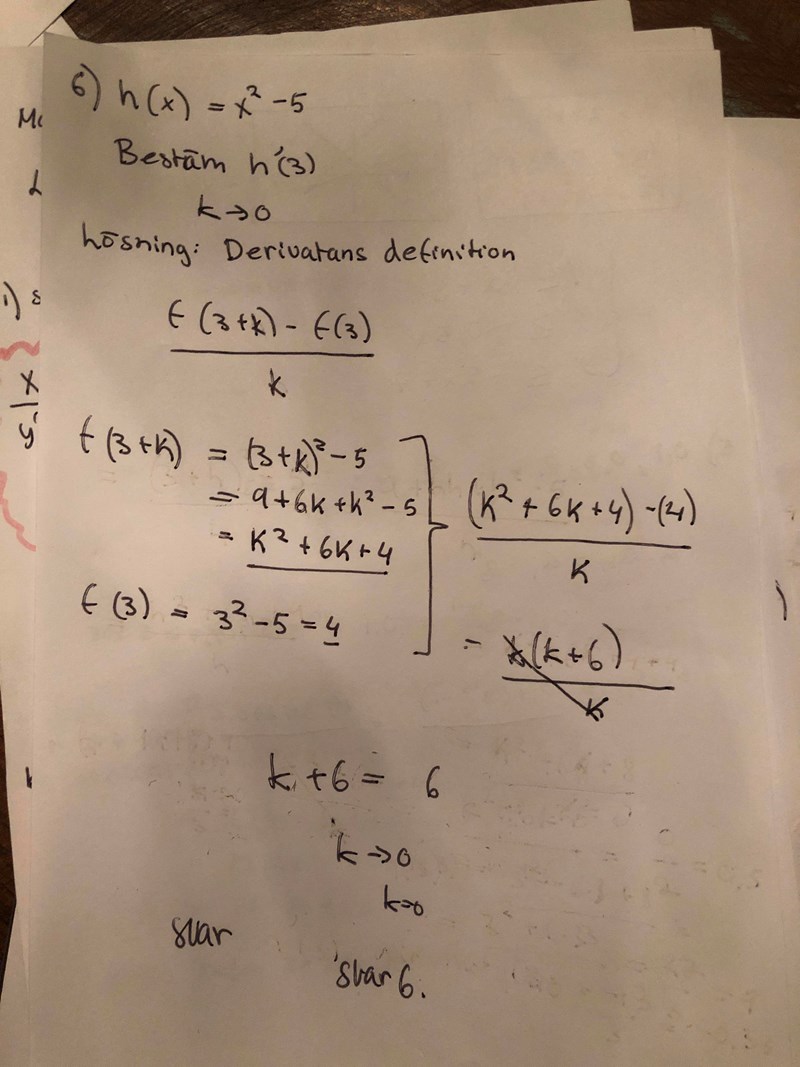 6) h(x) = x² - 5
Bestäm h'(3)
k→0
Lösning: Derivatans definition
f(3+k) - f(3)
k
f(3+k) = (3+k)² - 5
= 9+6k+k² - 5
= k² + 6k + 4
f(3) = 3² - 5 = 4
(k² + 6k + 4) - (4)
k
= k(k+6)
k
k + 6 = 6
k→0
k→0
svar
svar 6.
i) s
x
y'